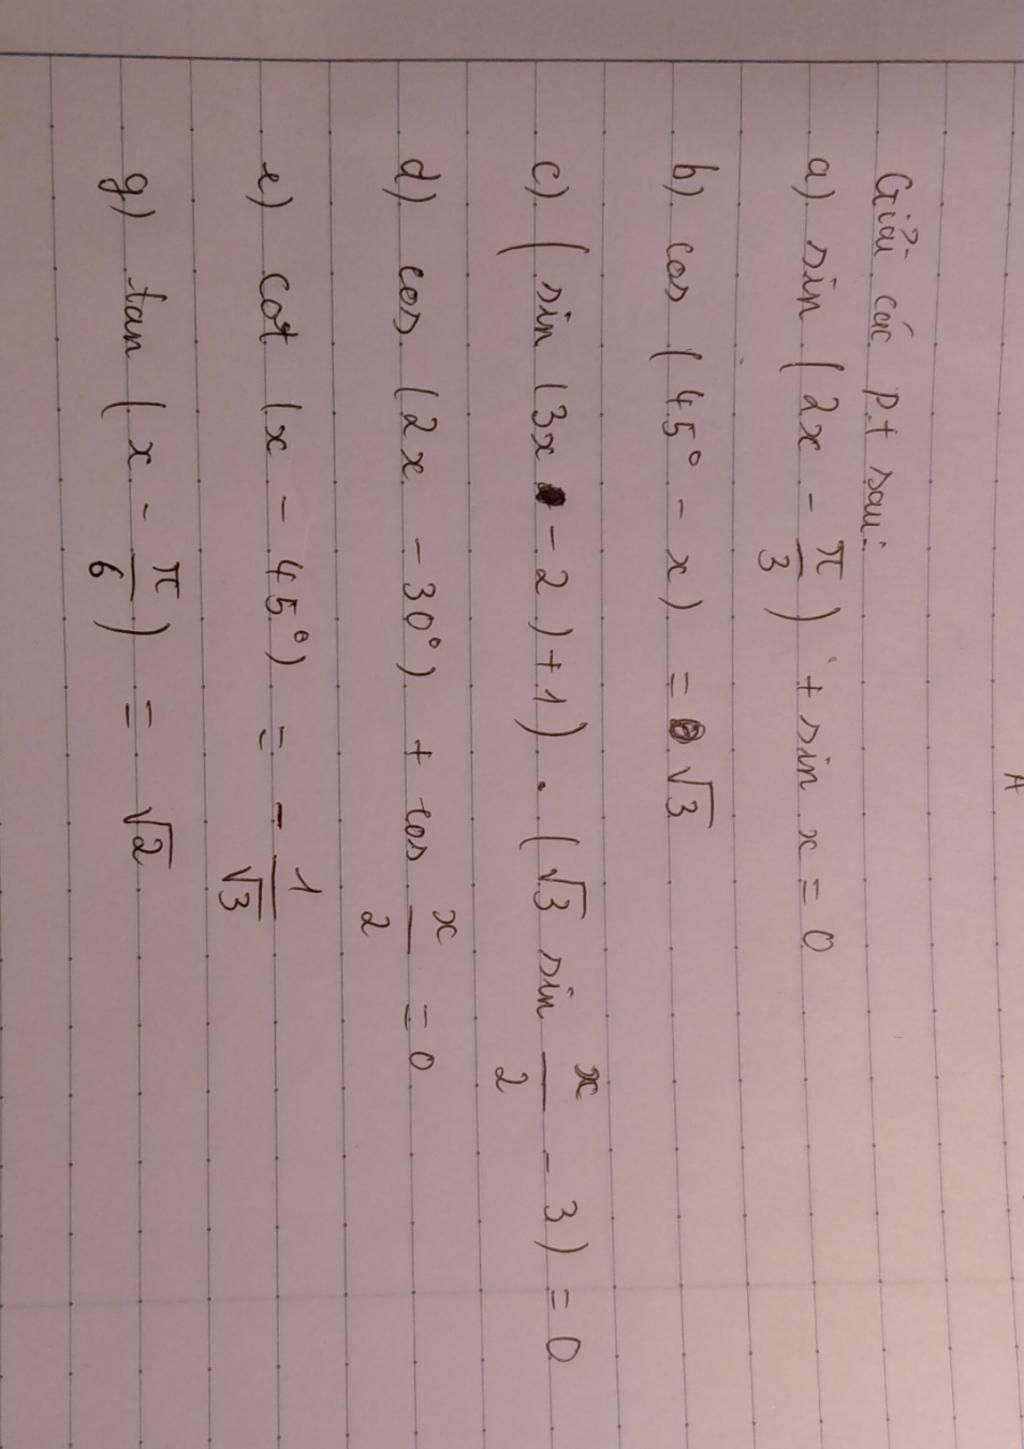 A
Giải các pt sau:
a) sin (2x - π/3) + sin x = 0
b) cos (45° - x) = √3
c) (sin (3x - 2) + 1) . (√3 sin x/2 - 3) = 0
d) cos (2x - 30°) + cos x/2 = 0
e) cot (x - 45°) = - 1/√3
g) tan (x - π/6) = √2